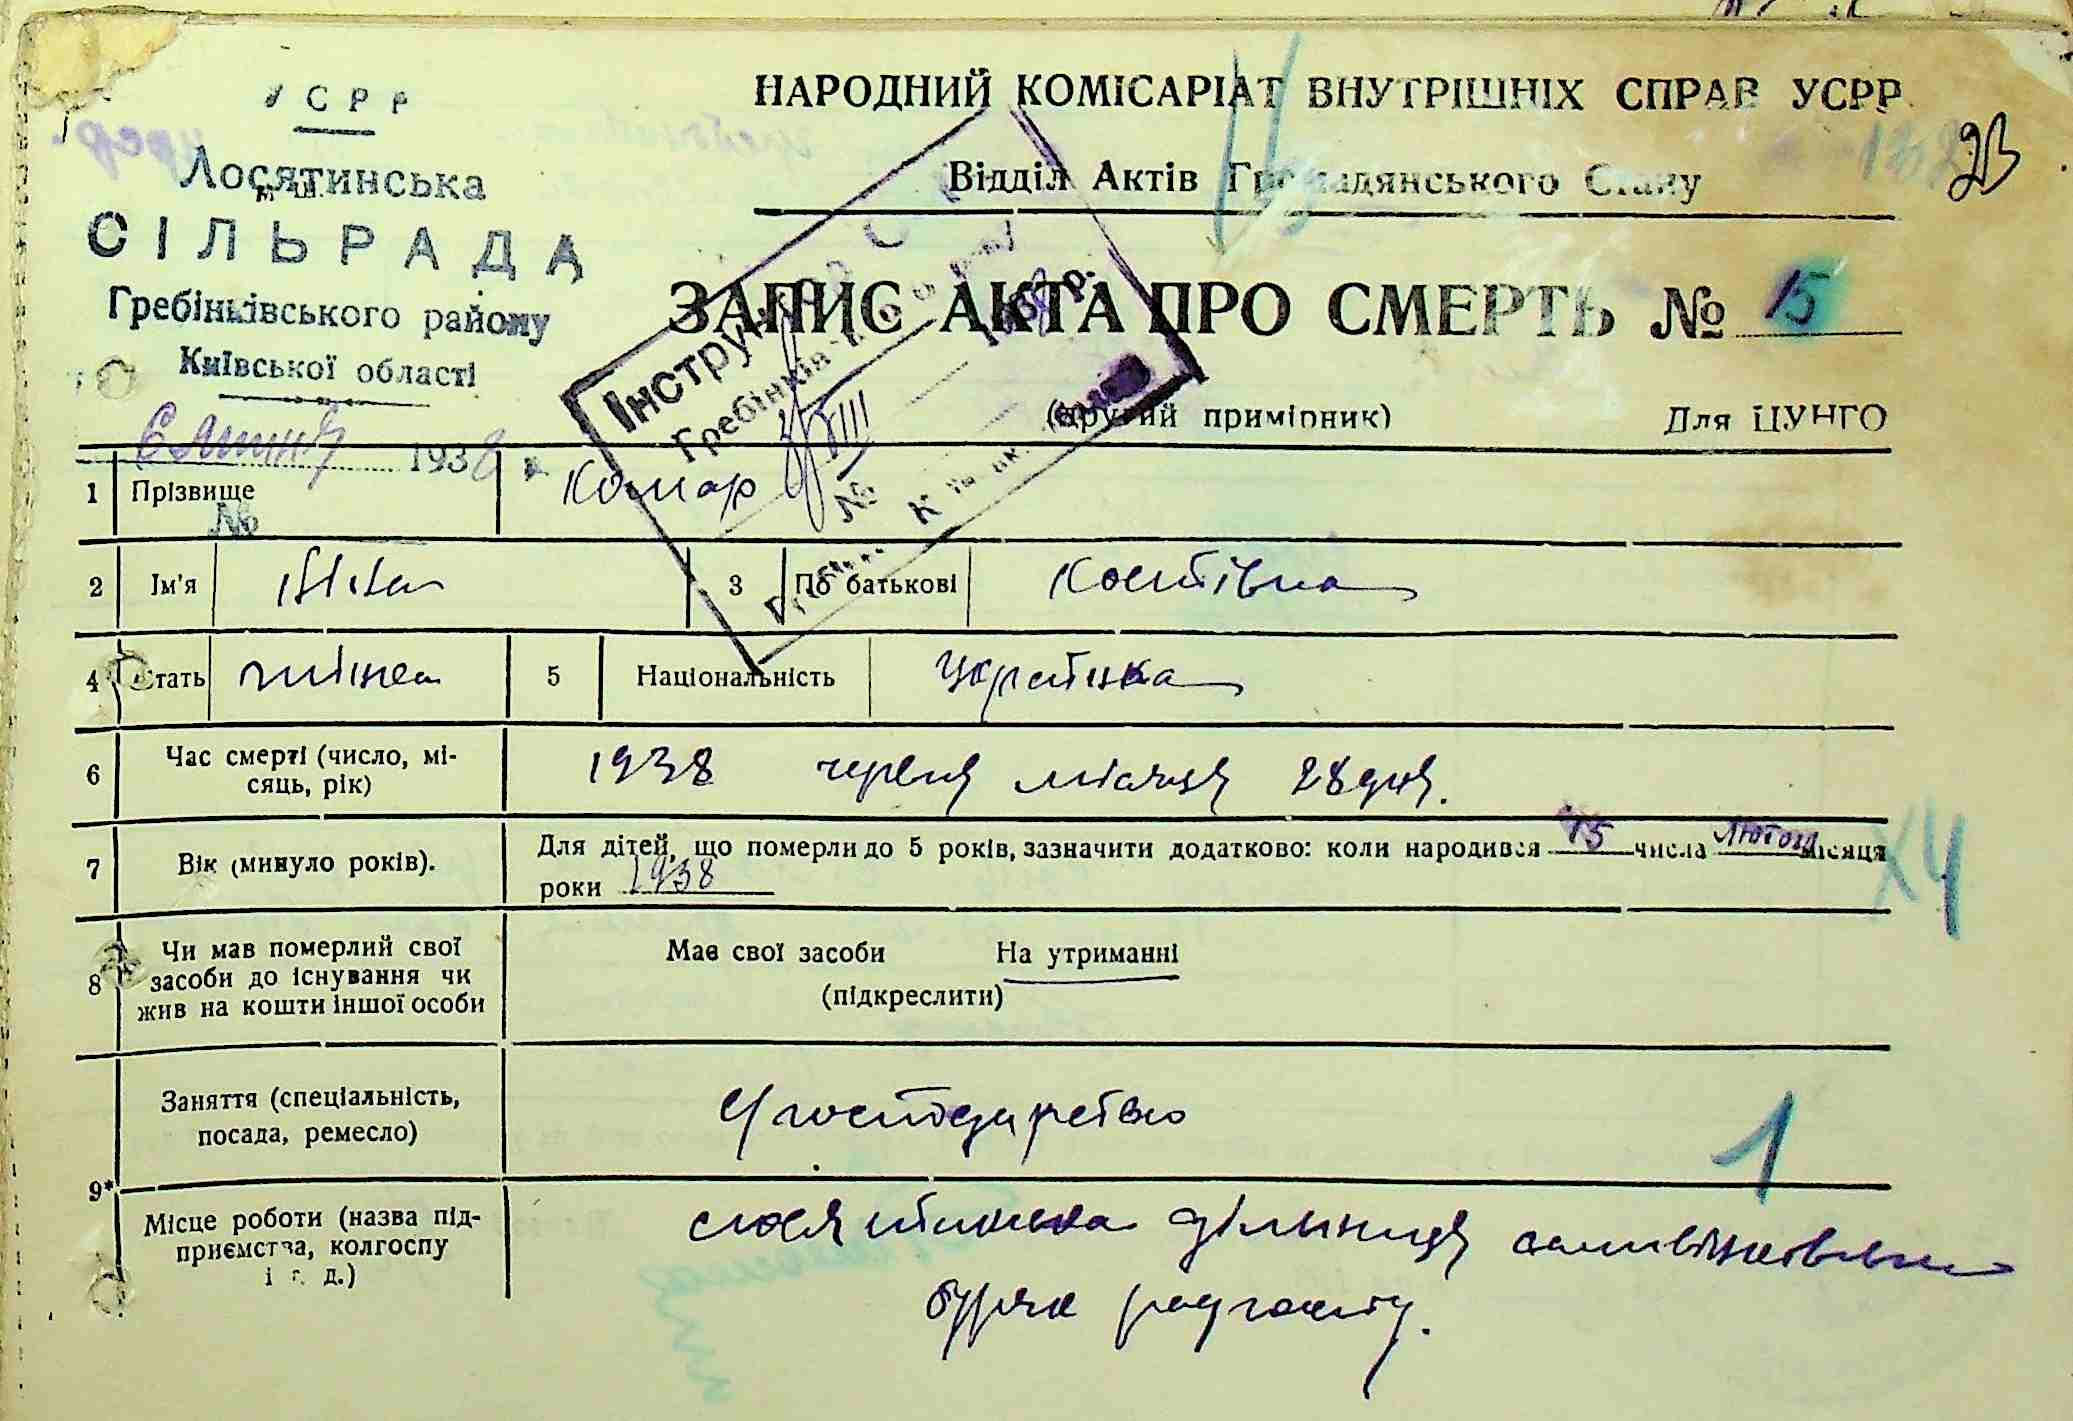 УСРР
Лосятинська
СІЛЬРАДА
Гребінківського району
Київської області
6 липня 1938
№
НАРОДНИЙ КОМІСАРІАТ ВНУТРІШНІХ СПРАВ УСРР
23
Відділ Актів Громадянського Стану
ЗАПИС АКТА ПРО СМЕРТЬ № 15
(другий примірник) Для ЦУНГО
1 Прізвище Комар
2 Ім'я Ніна 3 По батькові Костівна
4 Стать жіноча 5 Національність Українка
6 Час смерті (число, мі-
сяць, рік) 1938 червня місяця 28 дня.
7 Вік (минуло років). Для дітей, що померли до 5 років, зазначити додатково: коли народився 15 числа лютого місяця
роки 1938
Х4
8 Чи мав померлий свої
засоби до існування чи
жив на кошти іншої особи
Має свої засоби На утриманні
(підкреслити)
9* Заняття (спеціальність,
посада, ремесло) У господарстві
1
Місце роботи (назва під-
приємства, колгоспу
і т. д.)
Лосятинська дільниця
буряк радгоспу.